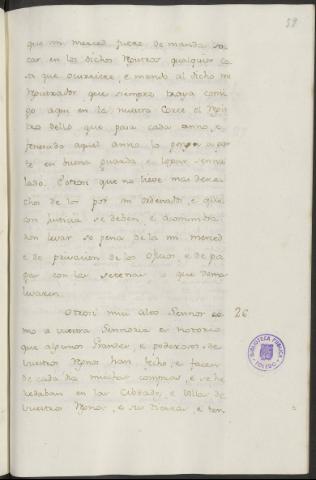 58
que mi merced fuere de manda sa
car en los dichos qualquier co
sa que ocurriere, e mando al dicho mi
que siempre traya consi
go aqui en la nuestra Corte el
tro dello que paia cada anno, e
fenecido aquel anno lo ponga apar
te en buena guarda, e logar senna
lado. E otrosi que no lieve mas dere
chos de los por mi ordenados, e que
con justicia se deben, e acostumbra
ron levar so pena de la mi merced
e de privacion de los oficios, e de pa
gar con las setenas lo que dema
levaren.
Otrosi mui alto Sennor co 26
mo a vuestra Sennoria es notorio
que algunos Grandes, e poderosos de
vuestros han fecho, e facen
de cada dia muchas compras, e se he
redaban en las Cibdades, e Villas de
vuestros e su tierra, e ten
BIBLIOTECA PUBLICA
TOLEDO